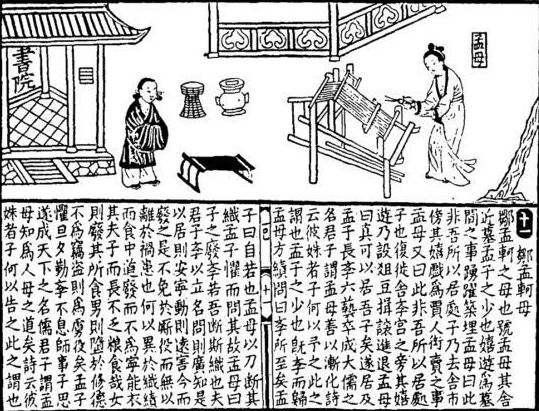 書院
孟母
十一 鄒孟軻母
鄒孟軻之母也號孟母其舍
近墓孟子之少也嬉遊爲墓
間之事踴躍築埋孟母曰此
非吾所以居處子乃去舍市
傍其嬉戲爲賈人衒賣之事
孟母又曰此非吾所以居處
子也復徙舍學宮之旁其嬉
遊乃設俎豆揖讓進退孟母
曰真可以居吾子矣遂居及
孟子長學六藝卒成大儒之
名君子謂孟母善以漸化詩
云彼姝者子何以予之此之
謂也孟子之少也既學而歸
孟母方績問曰學所至矣孟
十一
子曰自若也孟母以刀斷其
織孟子懼而問其故孟母曰
子之廢學若吾斷斯織也夫
君子學以立名問則廣知是
以居則安寧動則遠害今而
廢之是不免於厮役而無以
離於禍患也何以異於織績
而食中道廢而不爲寧能衣
其夫子而長不乏糧食哉女
則廢其所食男則墮於修德
不爲竊盜則爲虜役矣孟子
懼旦夕勤學不息師事子思
遂成天下之名儒君子謂孟
母知爲人母之道矣詩云彼
姝者子何以告之此之謂也